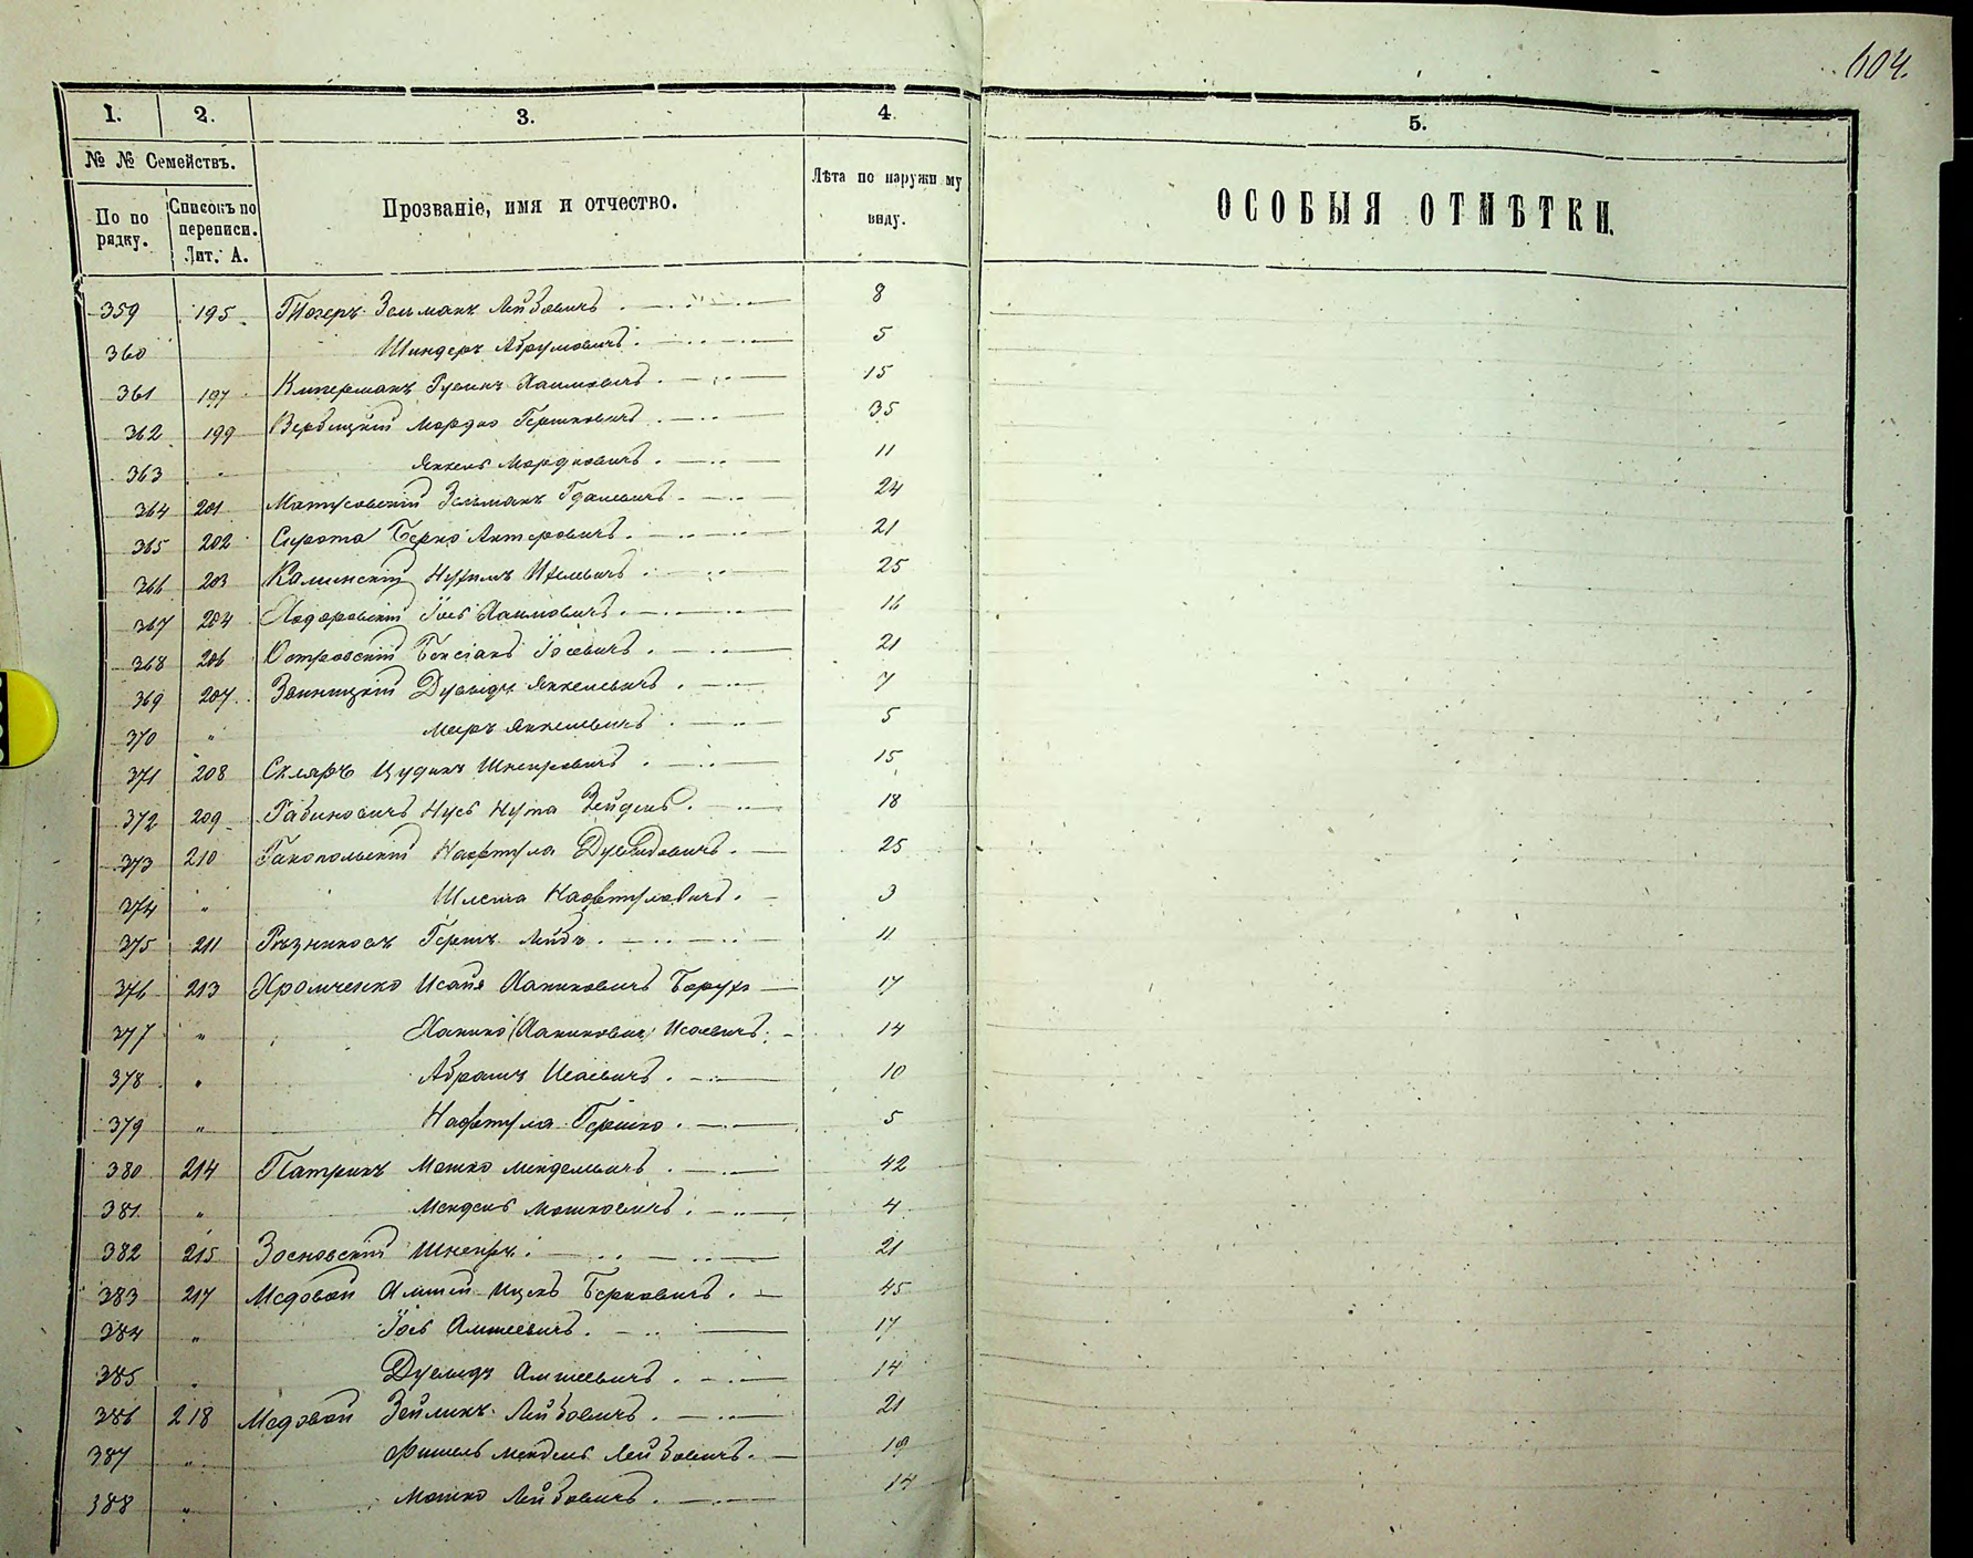 604.
1. 2. 3. 4. 5.
№ № Семействъ.
По по рядку.
Списокъ по переписи. Лит. А.
Прозваніе, имя и отчество.
Лѣта по наружн му виду.
ОСОБЫЯ ОТМѢТКИ.
359 195 Зельманъ Лейбовичъ 8
360 Шиндеръ Абрумовичъ 5
361 197 Киперманъ Рувинъ Хаимовичъ 15
362 199 Вербицкій Мордко Гершковичъ 35
363 Янкель Мордковичъ 11
364 201 Матусовскій Зельманъ Гдалевичъ 24
365 202 Сирота Берко Антеровичъ 21
366 203 Калинскій Нухимъ Ицелевичъ 25
367 204 Ходоровскій Іосъ Хаимовичъ 16
368 206 Островскій Бенсіанъ Іосевичъ 21
369 207 Звиницкій Дувидъ Янкелевичъ 7
370 " Меръ Янкелевичъ 5
371 208 Скляръ Цудикъ Шнеировичъ 15
372 209 Рабиновичъ Нусъ Нута Зейдель 18
373 210 Ракопольскій Нафтула Дувидовичъ 25
374 " Шлема Нафтуловичъ 3
375 211 Рѣзниковъ Гершъ Лейбъ 11
376 213 Хромченко Исаія Ханиновичъ Борухъ 17
377 " Ханино (Ханиновичъ) Исаевичъ 14
378 " Абрамъ Исаевичъ 10
379 " Нафтула Гершко 5
380 214 Патрикъ Мошко Менделевичъ 42
381 " Мендель Мошковичъ 4
382 215 Зосновскій Шнеиръ 21
383 217 Медовой Амшій Ицекъ Берковичъ 45
384 " Іосъ Амшеевичъ 17
385 " Дувидъ Амшеевичъ 14
386 218 Медовой Зейликъ Лейбовичъ 21
387 " Фишель Мендель Лейбовичъ 18
388 " Мошко Лейбовичъ 14